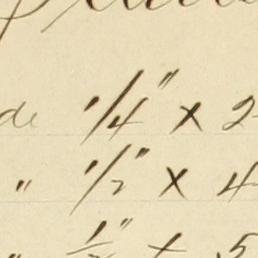 de 1/4" x 2
" 1/2" x 4
" 1/2" x 5